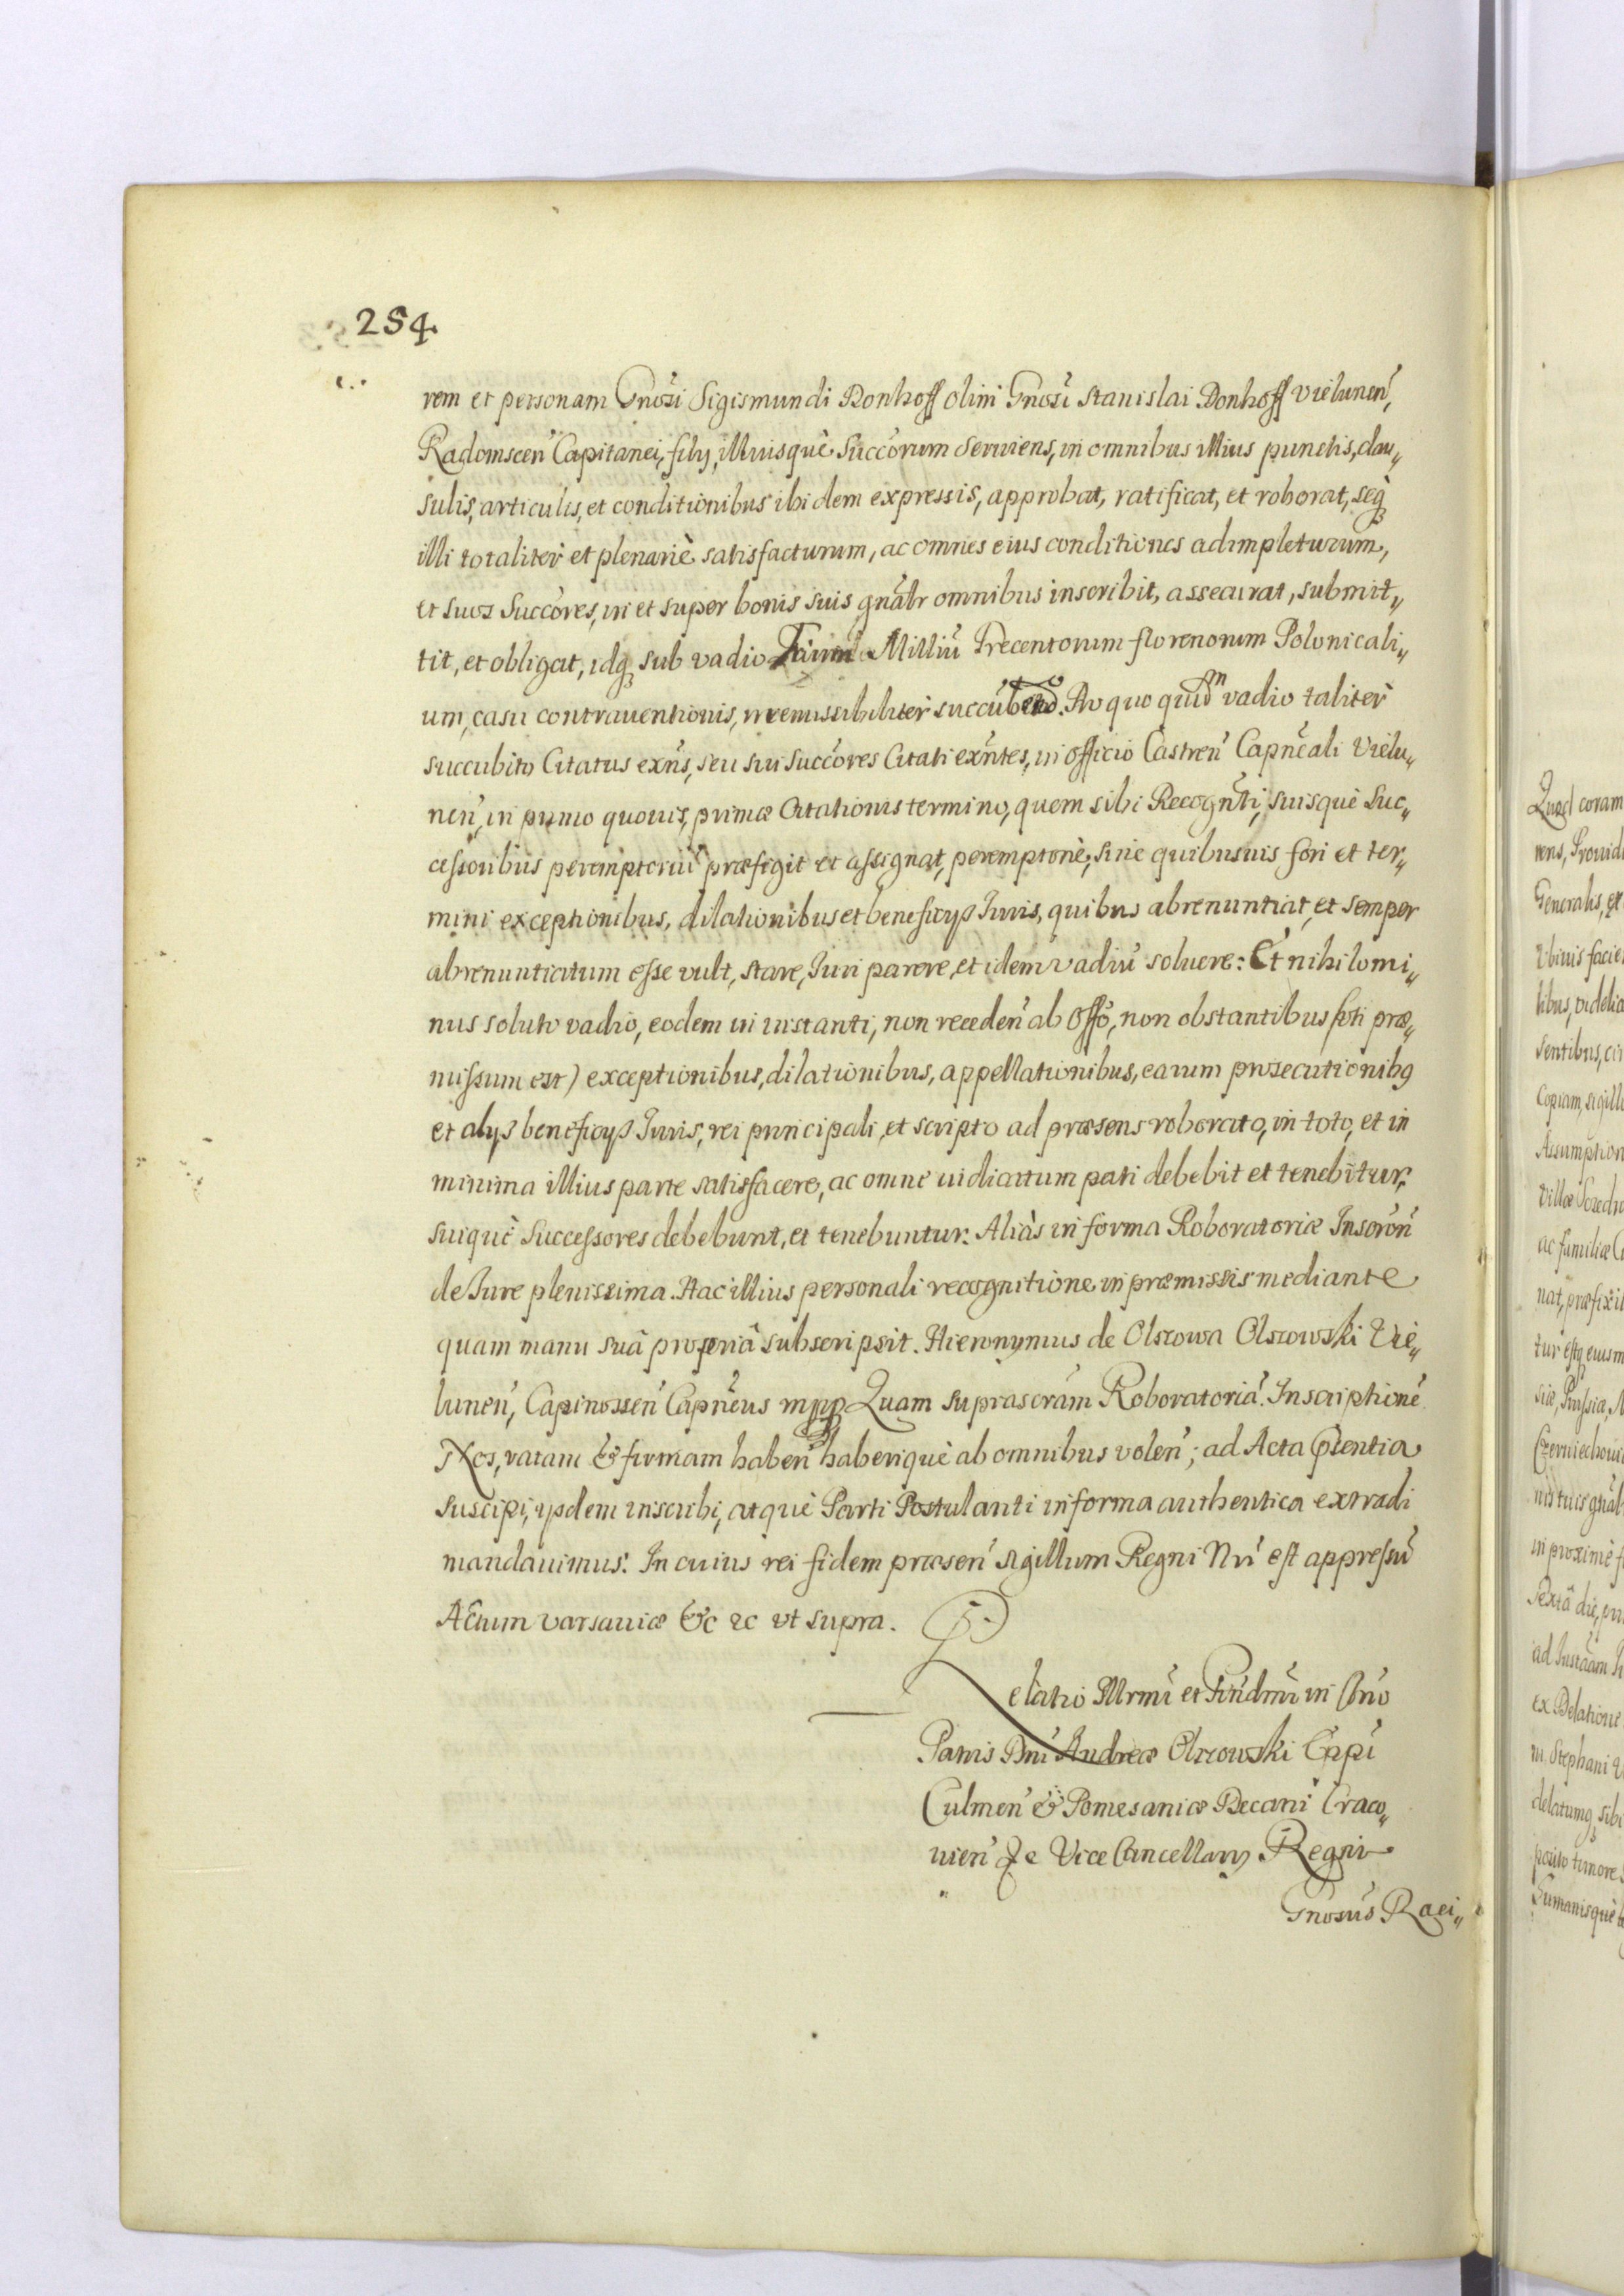 254.
rem et personam Gnosi Sigismundi Donhoff olim Gnosi Stanislai Donhoff Vielunen̄,
Radomscen̄ Capitanei, filij, illiusquè Succ̄orum seruiens, in omnibus illius punctis, clau„
sulis, articulis, et conditionibus ibidem expressis, approbat, ratificat, et roborat, seq₃
illi totalitèr et plenariè satisfacturum, ac omnes eius conditiones adimpleturum,
et suos Succ̄ores, in et super bonis suis gn̄alr omnibus inscribit, assecurat, submit„
tit, et obligat, idq₃ sub vadio Millíu Trecentorum florenorum Polonicali„
um, casu contrauentionis, irremissibilitèr succúbendo. Pro quo quidm̄ vadio talitèr
succubito Citatus exn̄s, seu sui Succ̄ores Citati exn̄tes, in Officio Castren̄ Capn̄eali Vielu„
nen̄, in primo quouis, primæ Citationis termino, quem sibi Recogn̄ti, suisquè Suc„
cessoribus peremptoriū præfigit et assignat, peremptoriè, sine quibusuis fori et ter„
mini exceptionibus, dilationibus et beneficijs Iuris, quibus abrenuntiat, et semper
abrenunciatum esse vult, stare, Iuri parere, et idem vadiū soluere: Et nihilomi„
nus soluto vadio, eodem in instanti, non receden̄ ab Offō, non obstantibus (uti præ„
missum est) exceptionibus, dilationibus, appellationibus, earum prosecutionib9
et alijs beneficijs Iuris, rei principali, et scripto ad præsens roborato, in toto, et in
minima illius parte satisfacere, ac omne iudicatum pati debebit et tenebitur,
suiquè Successores debebunt, et tenebuntur. Aliàs in forma Roboratoriæ Inscr̄on̄
de Iure plenissima. Hac illius personali recognitione in præmissis mediante
quam manu suâ propriâ subscripsit. Hieronymus de Olszowa Olszowski Vie„
lunen̄, Capinossen̄ Capn̄eus mpp Quam suprascr̄am Roboratoriā Inscriptionē
Nos, ratam & firmam haben̄ haberiquè ab omnibus volen̄; ad Acta Pn̄tia
suscipi, ijsdem inscribi, atquè Parti Postulanti in forma authentica extradi
mandauimus. In cuius rei fidem præsen̄ sigillum Regni Nrī est appressū
Actum Varsauiæ &c &c vt supra.
Relatio Illrm̄i et Rn̄dmī in Chrō
Patris Dnī Andreæ Olszowski Ep̄i
Culmen̄ & Pomesaniæ Decani Craco„
uien̄ Vice Cancellarij Regni
Gnosūs Raci„
Quod coram
Generalis, et
Vbiuis facie
sentibus, ci
Copiam, sigill
Assumption
ac familiæ
nat, præfixit
in proximè f
ex Relatione
delatumq₃ sibi